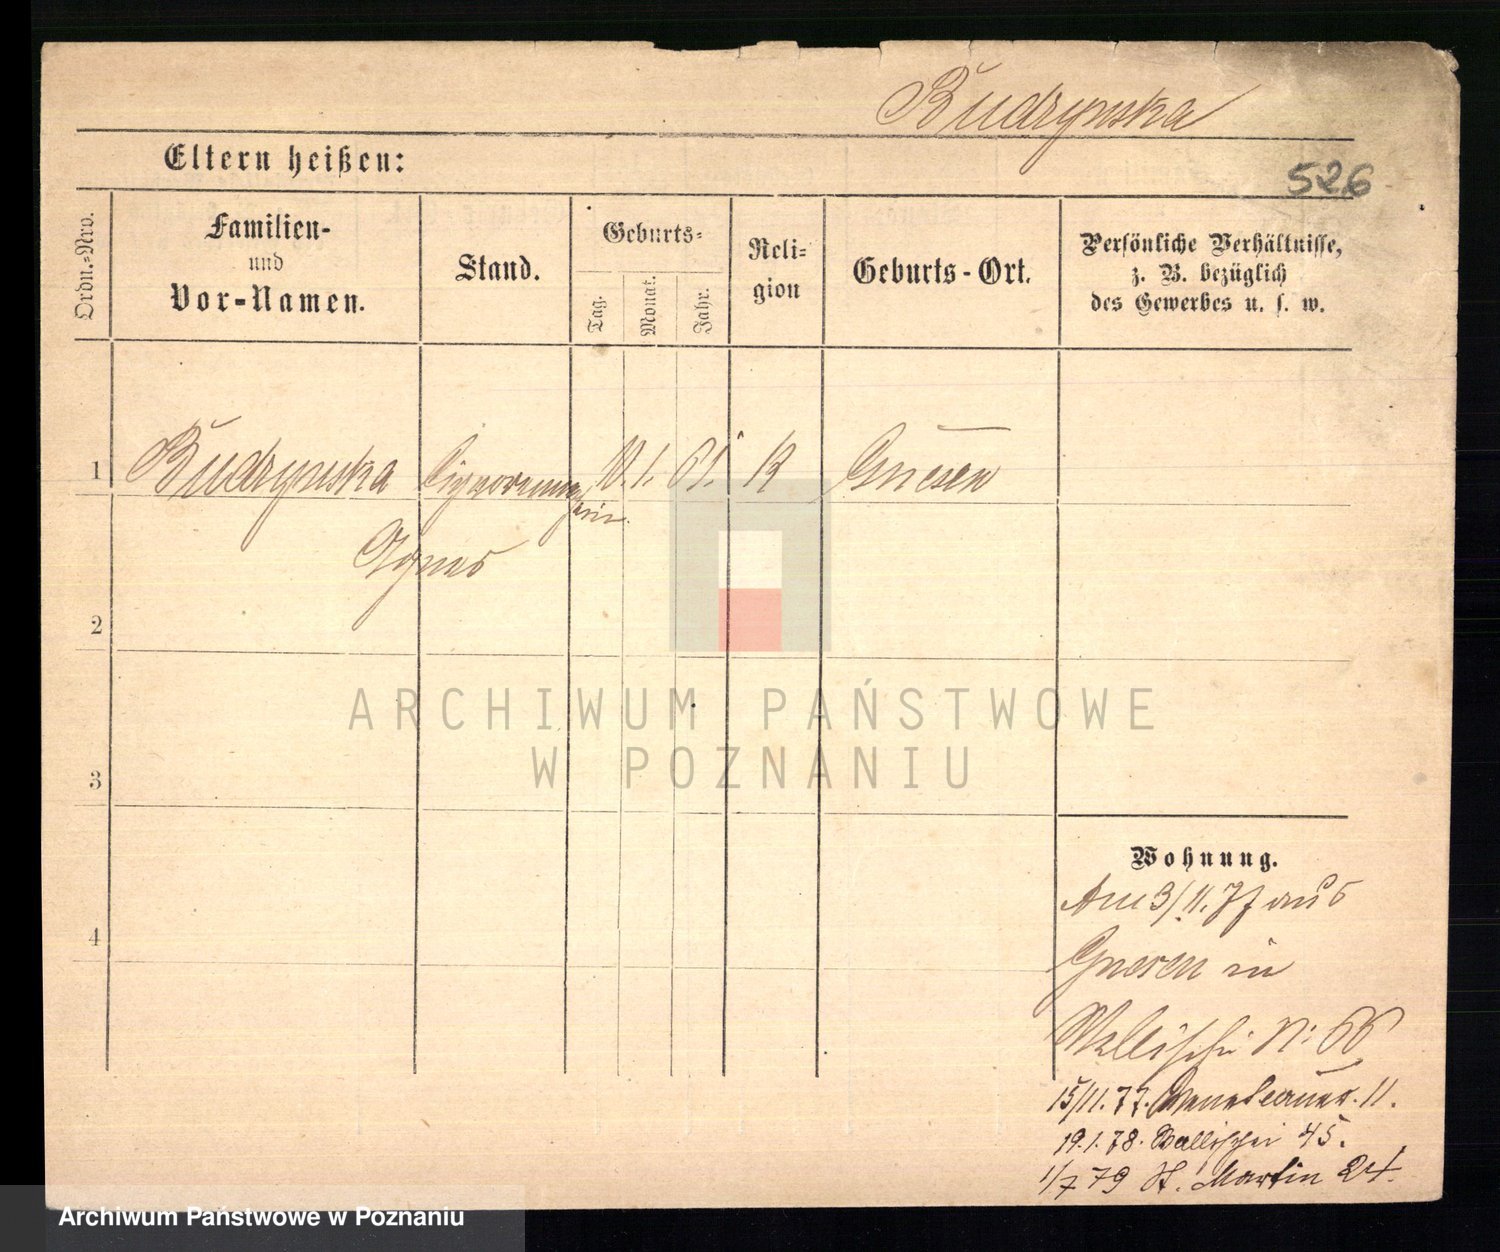 Budzynska
526
Eltern heißen:
Ordn.-Nro.
Familien-
und
Vor-Namen.
Stand.
Geburts-
Tag.
Monat.
Jahr.
Reli-
gion
Geburts-Ort.
Persönliche Verhältnisse,
z. B. bezüglich
des Gewerbes u. s. w.
1
Budzynska
61.
K
Gnesen
Agnes
2
3
4
ARCHIWUM PAŃSTWOWE
W POZNANIU
Wohnung.
Am 3/11. 77 aus
Gnesen in
Wallischei N: 66
15/11. 77. 11.
19.1.78. Wallischei 45.
1/7 79 St. Martin 24.
Archiwum Państwowe w Poznaniu